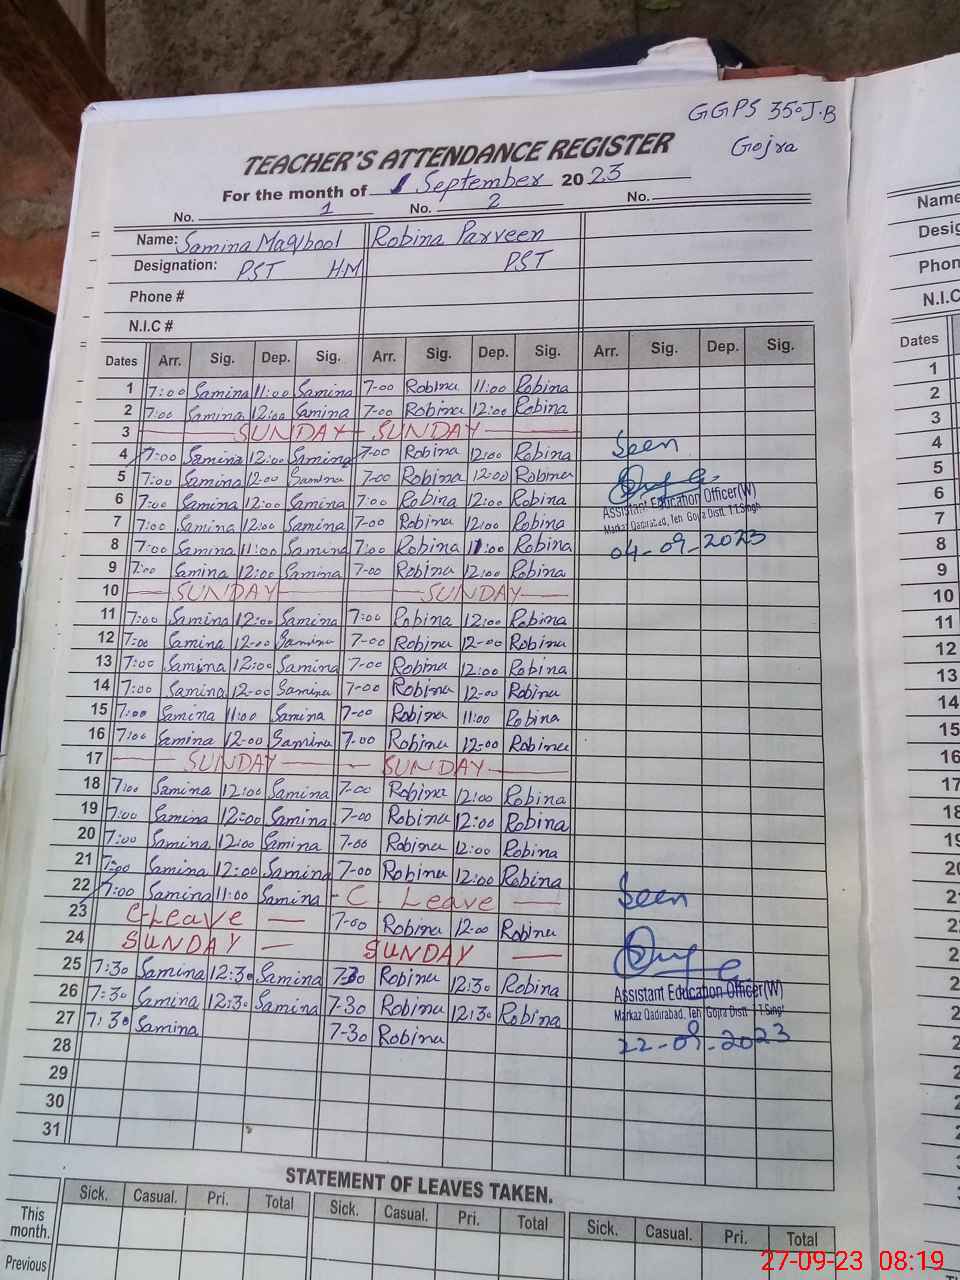 GGPS 350 J.B
Gojra
TEACHER'S ATTENDANCE REGISTER
For the month of September 2023
No. 1 No. 2 No.
Name: Samina Maqbool Robina Parveen
Designation: PST HM PST
Phone #
N.I.C #
Dates Arr. Sig. Dep. Sig. Arr. Sig. Dep. Sig. Arr. Sig. Dep. Sig.
1 7:00 Samina 11:00 Samina 7-00 Robina 11:00 Robina
2 7:00 Samina 12:00 Samina 7-00 Robina 12:00 Robina
3 SUNDAY SUNDAY
4 7:00 Samina 12:00 Samina 7-00 Robina 12:00 Robina Seen
5 7:00 Samina 12-00 Samina 7-00 Robina 12:00 Robina
6 7:00 Samina 12:00 Samina 7:00 Robina 12:00 Robina Assistant Education Officer(W)
7 7:00 Samina 12:00 Samina 7-00 Robina 12:00 Robina Markaz Qadirabad, Teh Gojra Distt. T.T.Singh
8 7:00 Samina 11:00 Samina 7:00 Robina 11:00 Robina 04-09-2023
9 7:00 Samina 12:00 Samina 7-00 Robina 12:00 Robina
10 SUNDAY SUNDAY
11 7:00 Samina 12:00 Samina 7:00 Robina 12:00 Robina
12 7:00 Samina 12-00 Samina 7-00 Robina 12-00 Robina
13 7:00 Samina 12:00 Samina 7-00 Robina 12:00 Robina
14 7:00 Samina 12-00 Samina 7-00 Robina 12-00 Robina
15 7:00 Samina 11:00 Samina 7-00 Robina 11:00 Robina
16 7:00 Samina 12-00 Samina 7-00 Robina 12-00 Robina
17 SUNDAY SUNDAY
18 7:00 Samina 12:00 Samina 7-00 Robina 12:00 Robina
19 7:00 Samina 12:00 Samina 7-00 Robina 12:00 Robina
20 7:00 Samina 12:00 Samina 7-00 Robina 12:00 Robina
21 7:00 Samina 12:00 Samina 7-00 Robina 12:00 Robina
22 7:00 Samina 11:00 Samina C Leave Seen
23 C-Leave 7-00 Robina 12-00 Robina
24 SUNDAY SUNDAY
25 7:30 Samina 12:30 Samina 7-30 Robina 12:30 Robina
26 7:30 Samina 12:30 Samina 7-30 Robina 12:30 Robina Assistant Education Officer(W)
27 7:30 Samina 7-30 Robina Markaz Qadirabad, Teh Gojra Distt T.T.Singh
28 22-09-2023
29
30
31
STATEMENT OF LEAVES TAKEN.
Sick. Casual. Pri. Total Sick. Casual. Pri. Total Sick. Casual. Pri. Total
This month.
Previous
Name
Desig
Phon
N.I.C
Dates
1
2
3
4
5
6
7
8
9
10
11
12
13
14
15
16
17
18
27-09-23 08:19